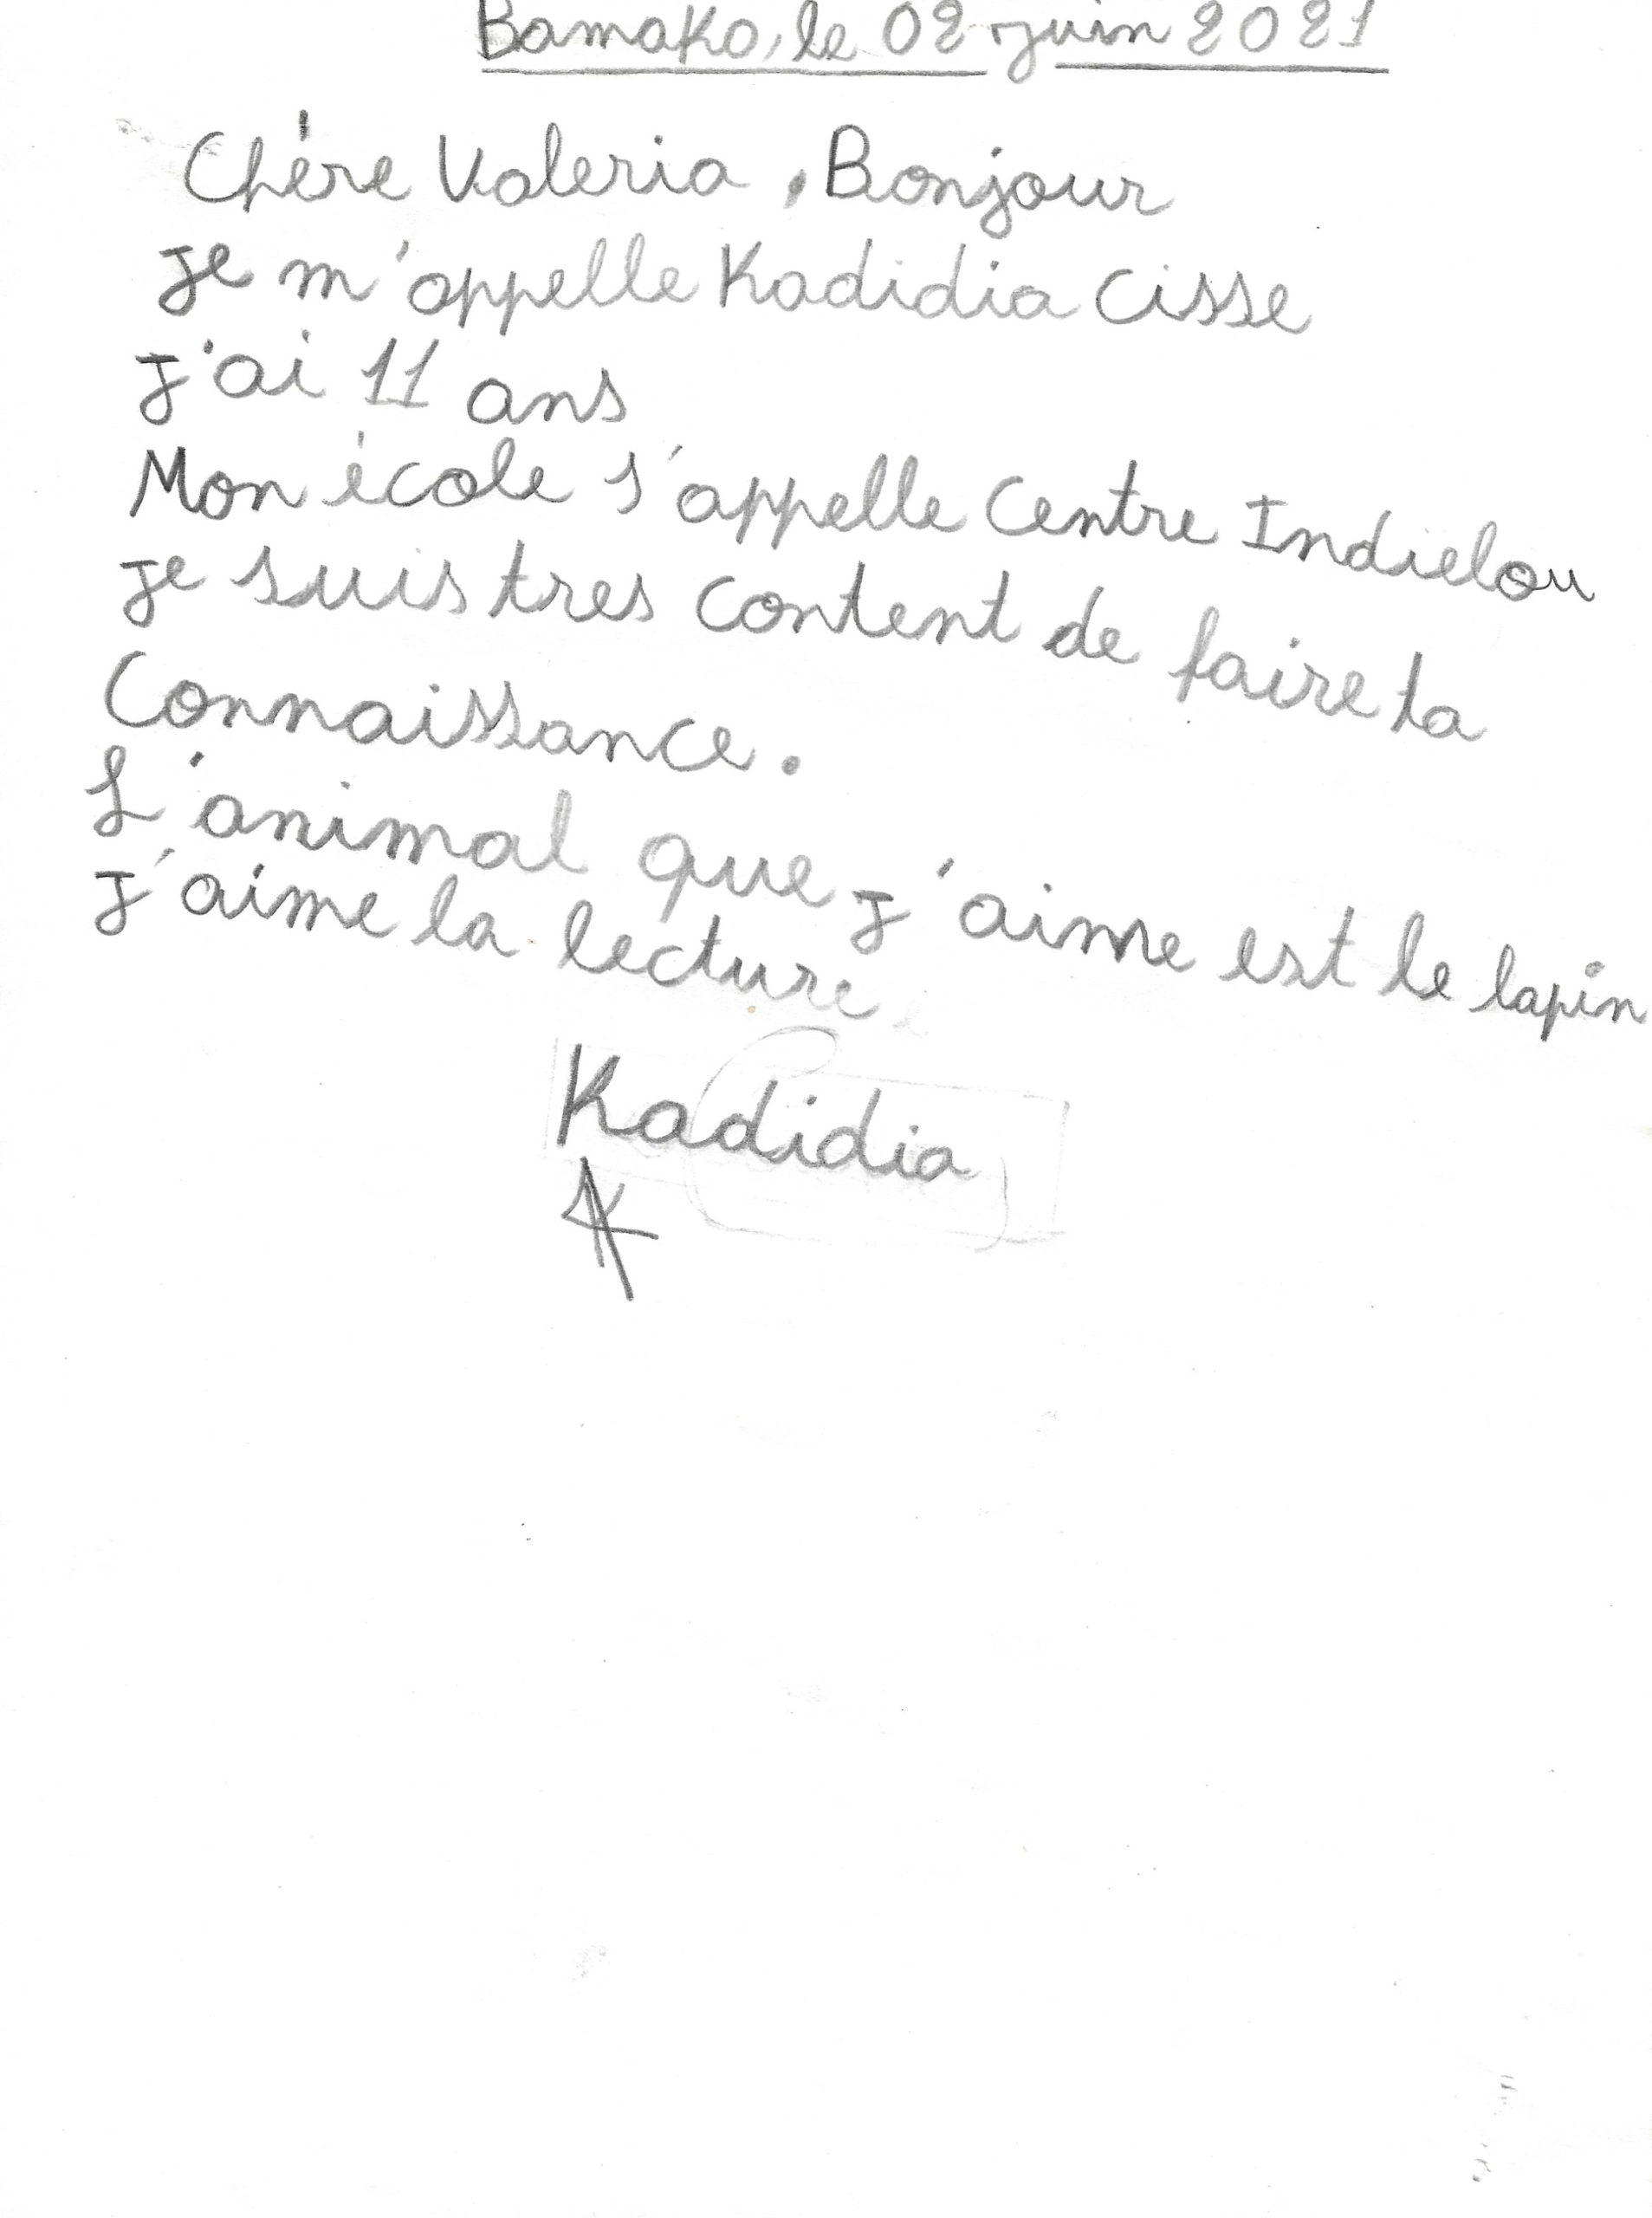 Bamako, le 02 juin 2021
Chère Valeria, Bonjour
je m'appelle Kadidia Cisse
j'ai 11 ans
Mon école s'appelle Centre Indielou
je suis tres content de faire ta
Connaissance.
L'animal que j'aime est le lapin
j'aime la lecture
Kadidia